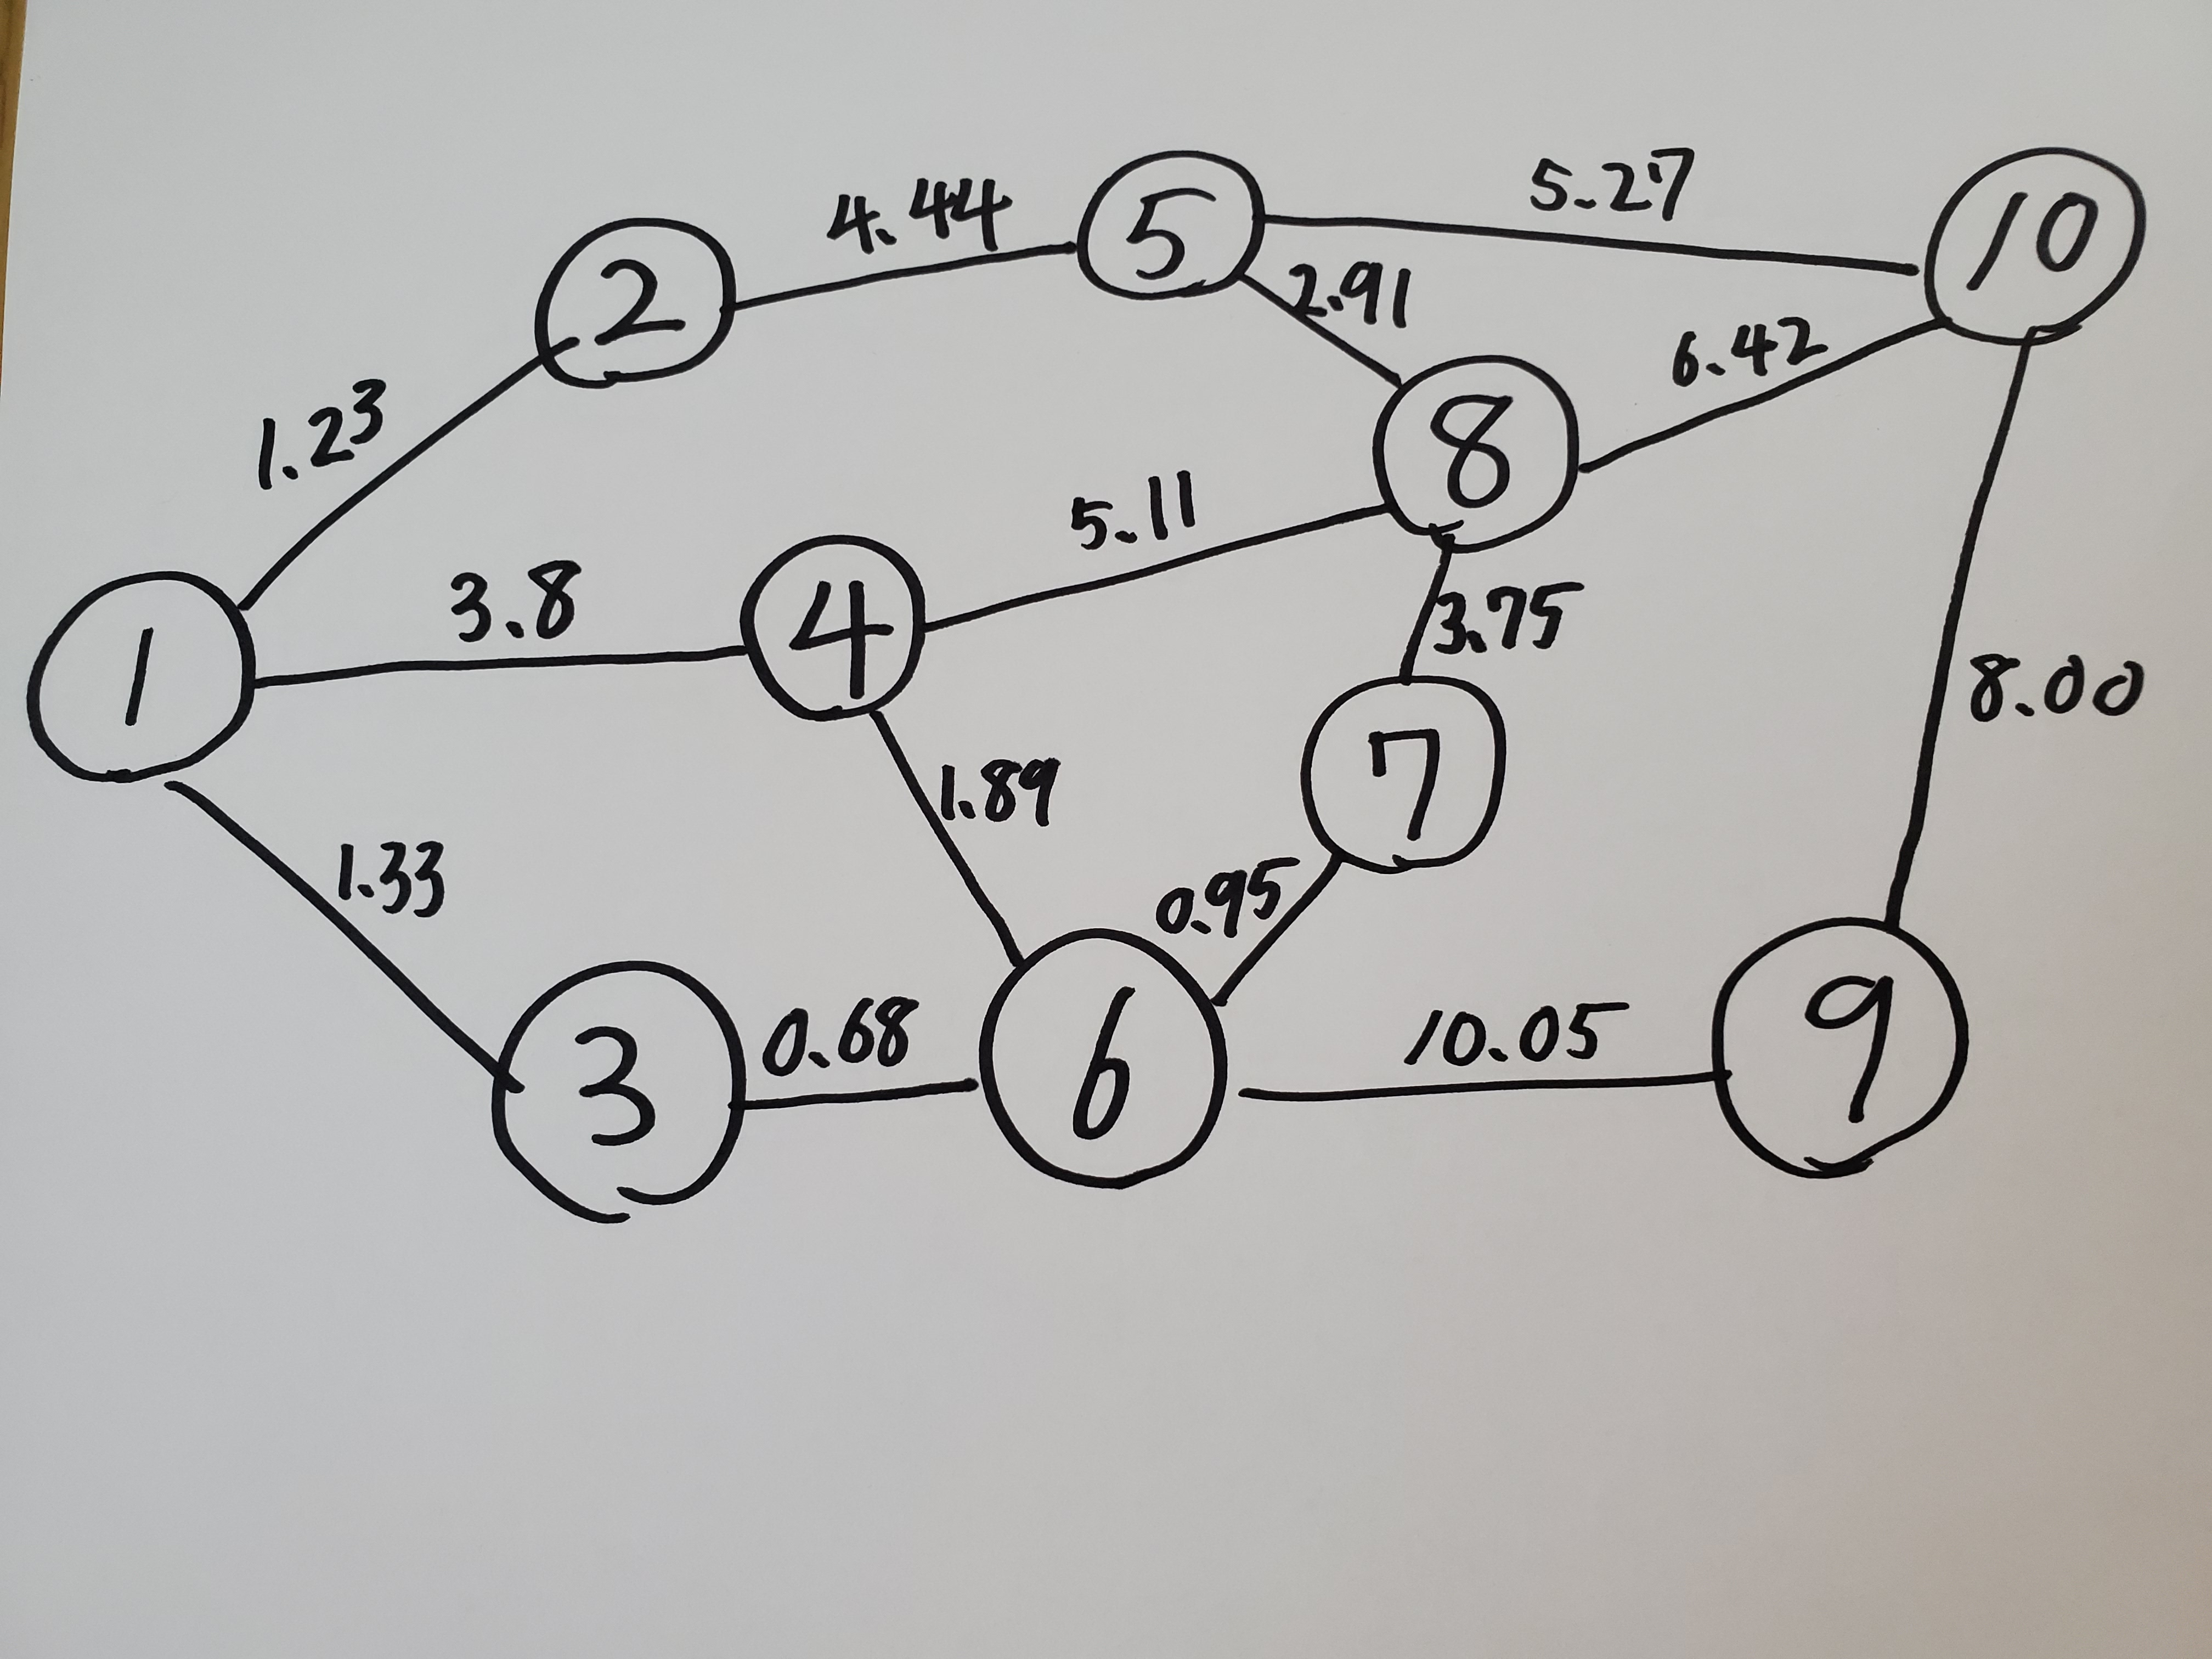 5.27
4.44
5
10
2
2.91
6.42
1.23
8
5.11
3.8
4
3.75
1
8.00
7
1.89
1.33
0.95
9
0.68
10.05
3
6